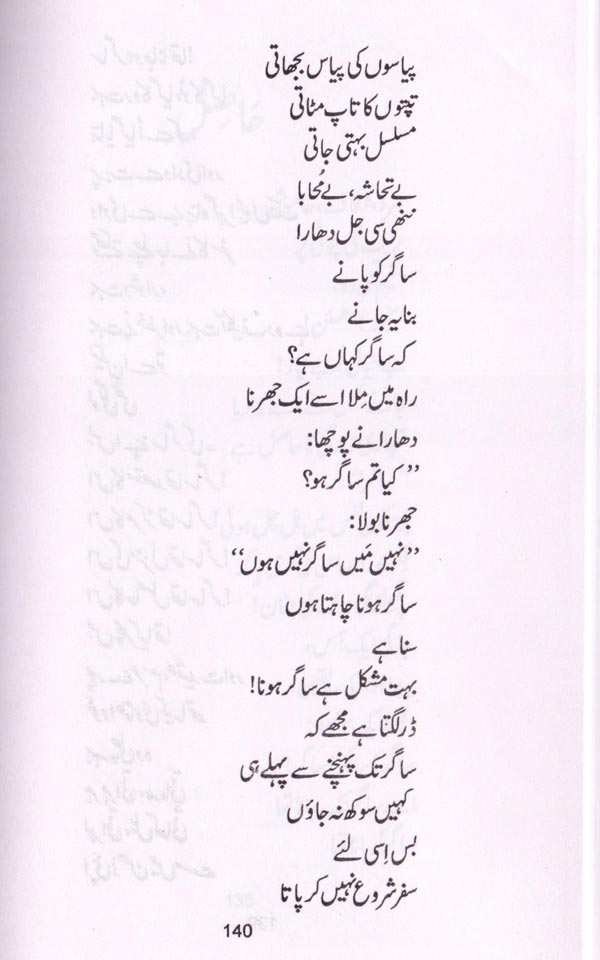 پیاسوں کی پیاس بجھاتی
تپتوں کا تاپ مٹاتی
مسلسل بہتی جاتی
بے تحاشہ، بے مُحابا
ننھی سی جل دھارا
ساگر کو پانے
بنا یہ جانے
کہ ساگر کہاں ہے؟
راہ میں مِلا اسے ایک جھرنا
دھارا نے پوچھا:
”کیا تم ساگر ہو؟
جھرنا بولا:
”نہیں مَیں ساگر نہیں ہوں“
ساگر ہونا چاہتا ہوں
سنا ہے
بہت مشکل ہے ساگر ہونا!
ڈر لگتا ہے مجھے کہ
ساگر تک پہنچنے سے پہلے ہی
کہیں سوکھ نہ جاؤں
بس اِسی لئے
سفر شروع نہیں کر پاتا
140